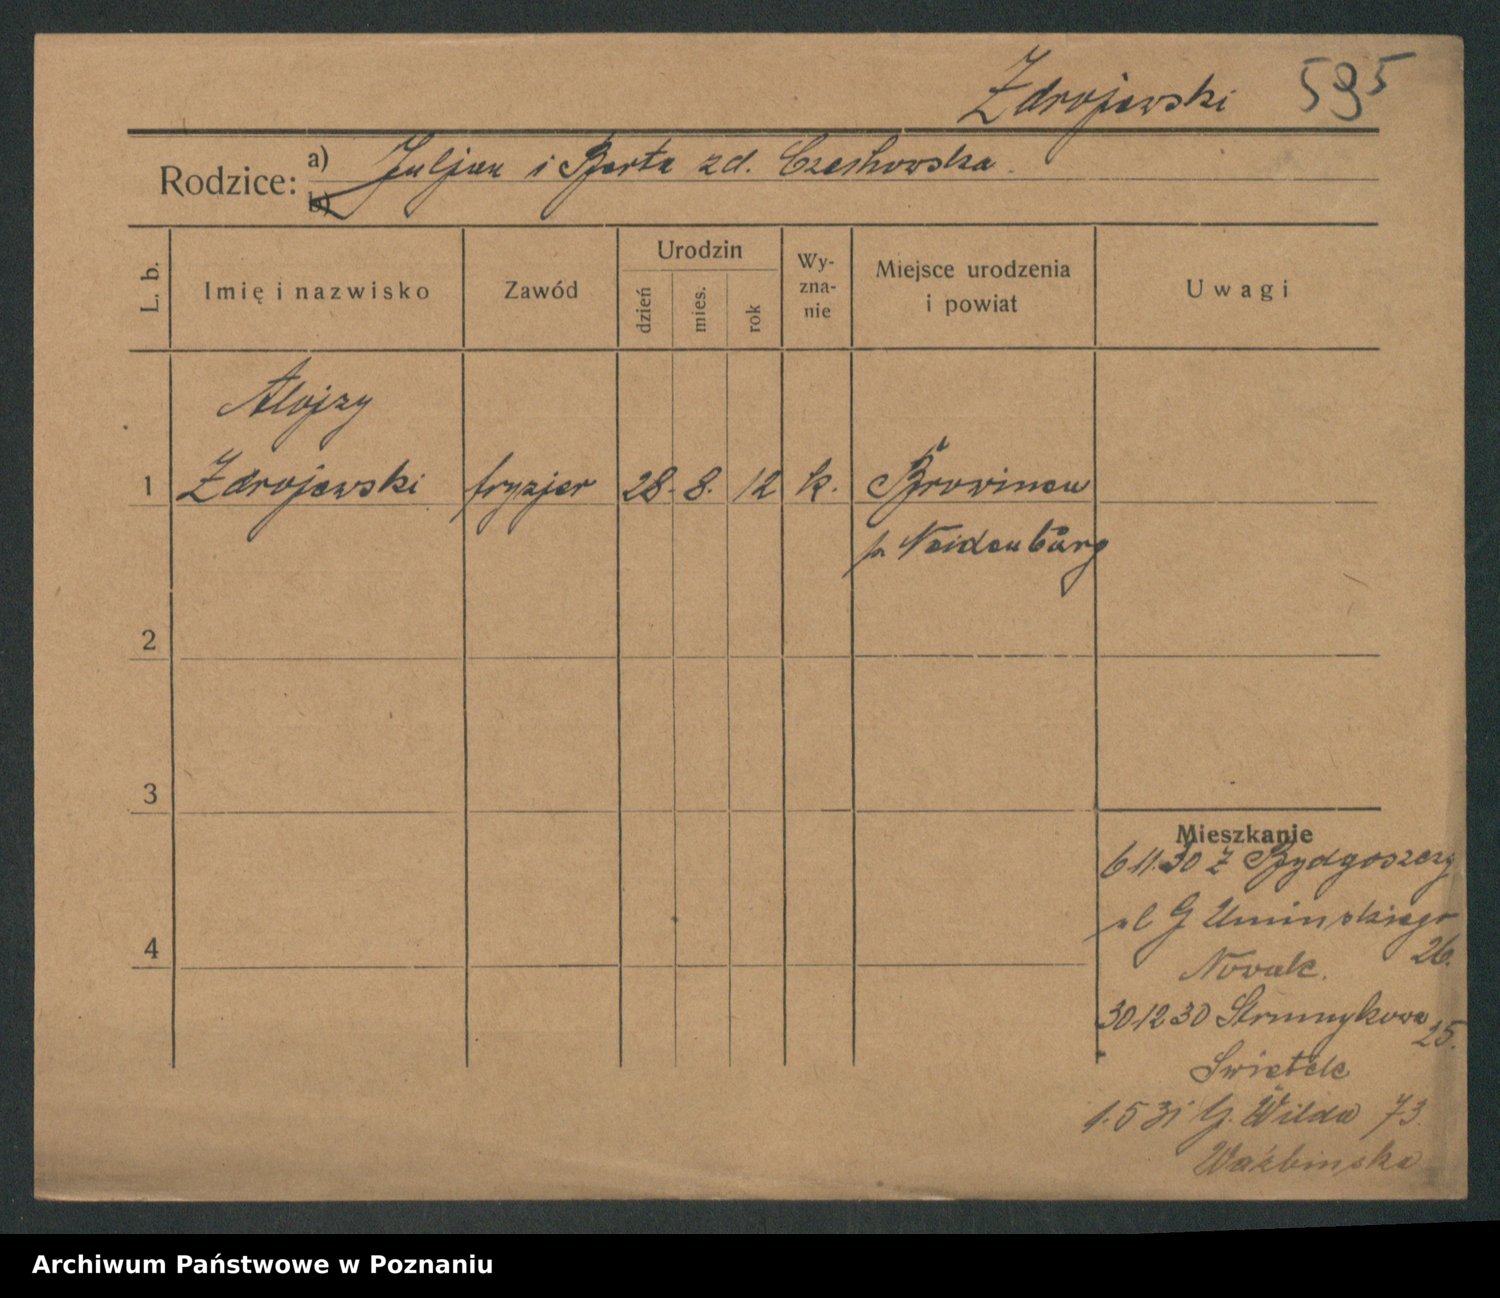 Zdrojewski 595
Rodzice: a) Juljan i Berta zd. Czechowska.
b)
L. b.
Imię i nazwisko
Zawód
Urodzin
dzień
mies.
rok
Wy-
zna-
nie
Miejsce urodzenia
i powiat
Uwagi
Alojzy
1 Zdrojewski fryzjer 28. 8. 12 k. Browinen
p. Neidenburg
2
3
Mieszkanie
6 11. 30 z Bydgoszczy
ul G Umińskiego
26.
Nowak.
4
30 12 30 Strumykowa
25.
Swietek
1. 5 31 G. Wilda 73.
Waźbinska
Archiwum Państwowe w Poznaniu